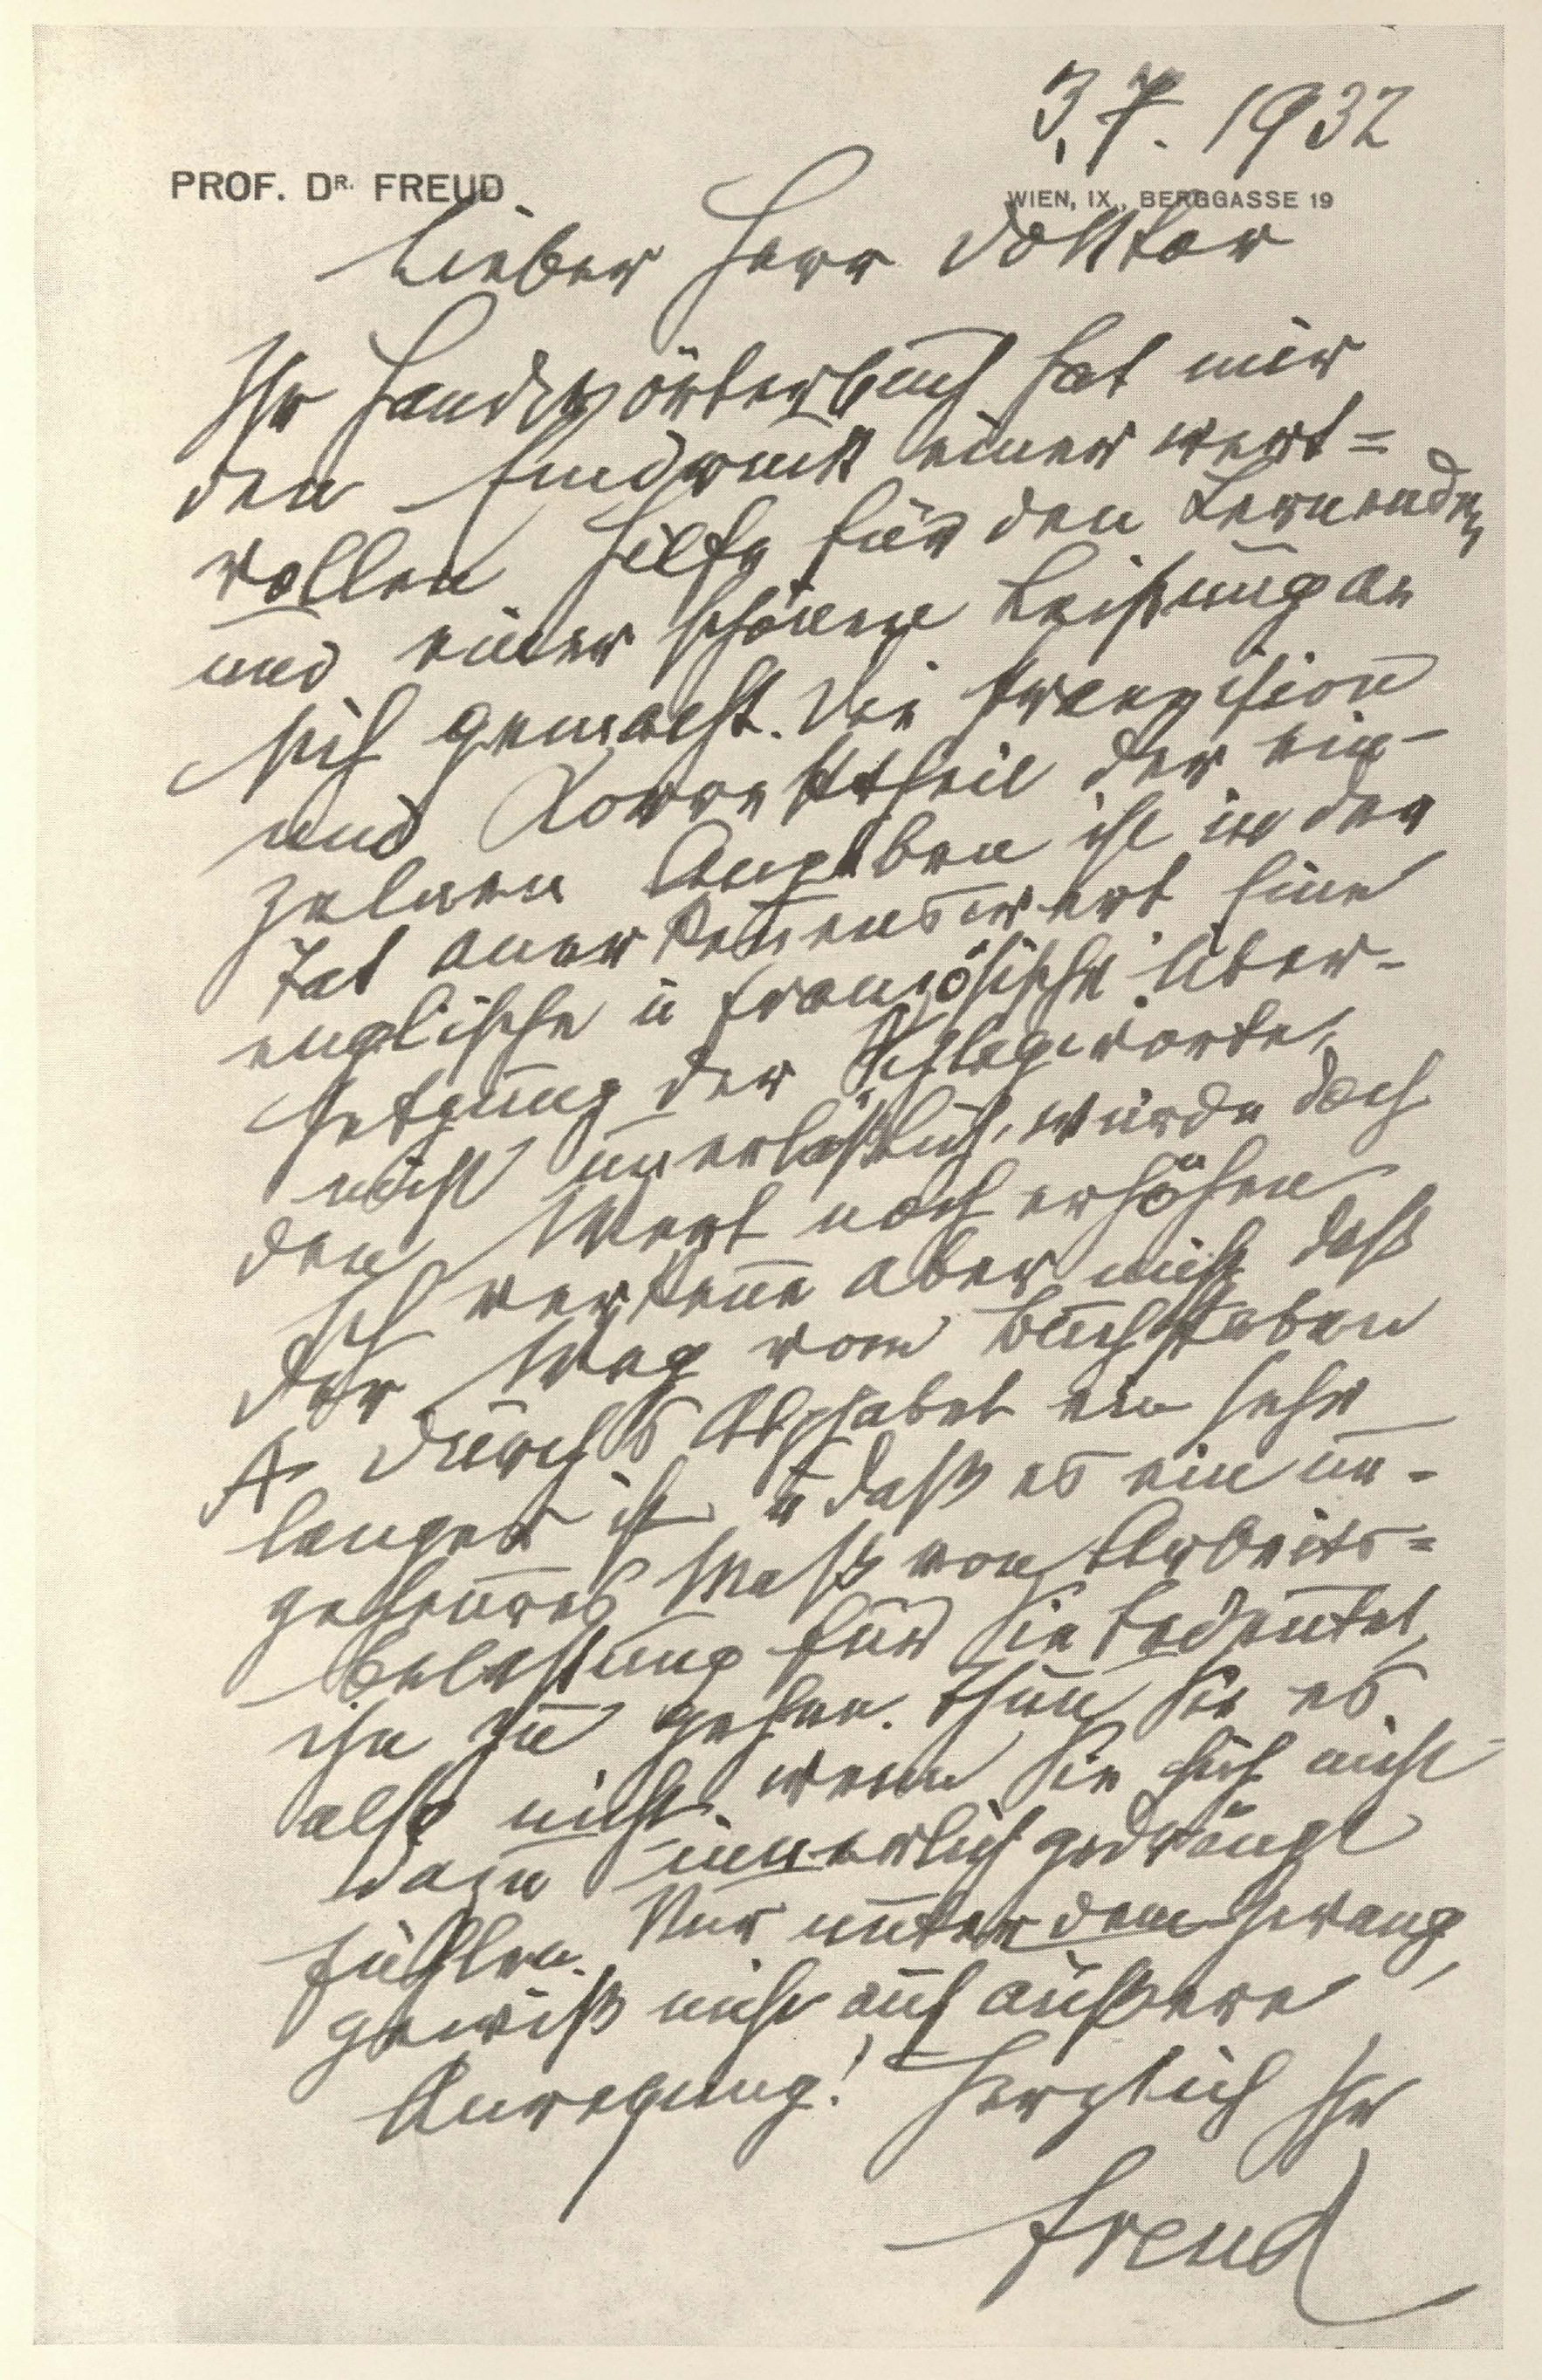 3. 7. 1932
PROF. DR. FREUD
WIEN, IX., BERGGASSE 19
Lieber Herr Doktor
Ihr Handwörterbuch hat mir
den Eindruck einer wert=
vollen Hilfe für den Lernenden
und einer schönen Leistung an
sich gemacht. Die Praezision
und Korrektheit der ein-
zelnen Angaben ist in der
Tat anerkennenswert Eine
englische u französische Über-
setzung der Schlagworte,
nicht unerläßlich, würde doch
den Wert noch erhöhen
Ich verkenne aber nicht daß
der Weg vom Buchstaben
A durchs Alphabet ein sehr
langer ist u daß es ein un-
geheures Maß von Arbeits=
belastung für Sie bedeutet,
ihn zu gehen. Thun Sie es
also nicht, wenn Sie sich nicht
dazu innerlich gedrängt
fühlen. Nur unter dem Zwang,
gewiß nicht auf äußere
Anregung! Herzlich Ihr
Freud